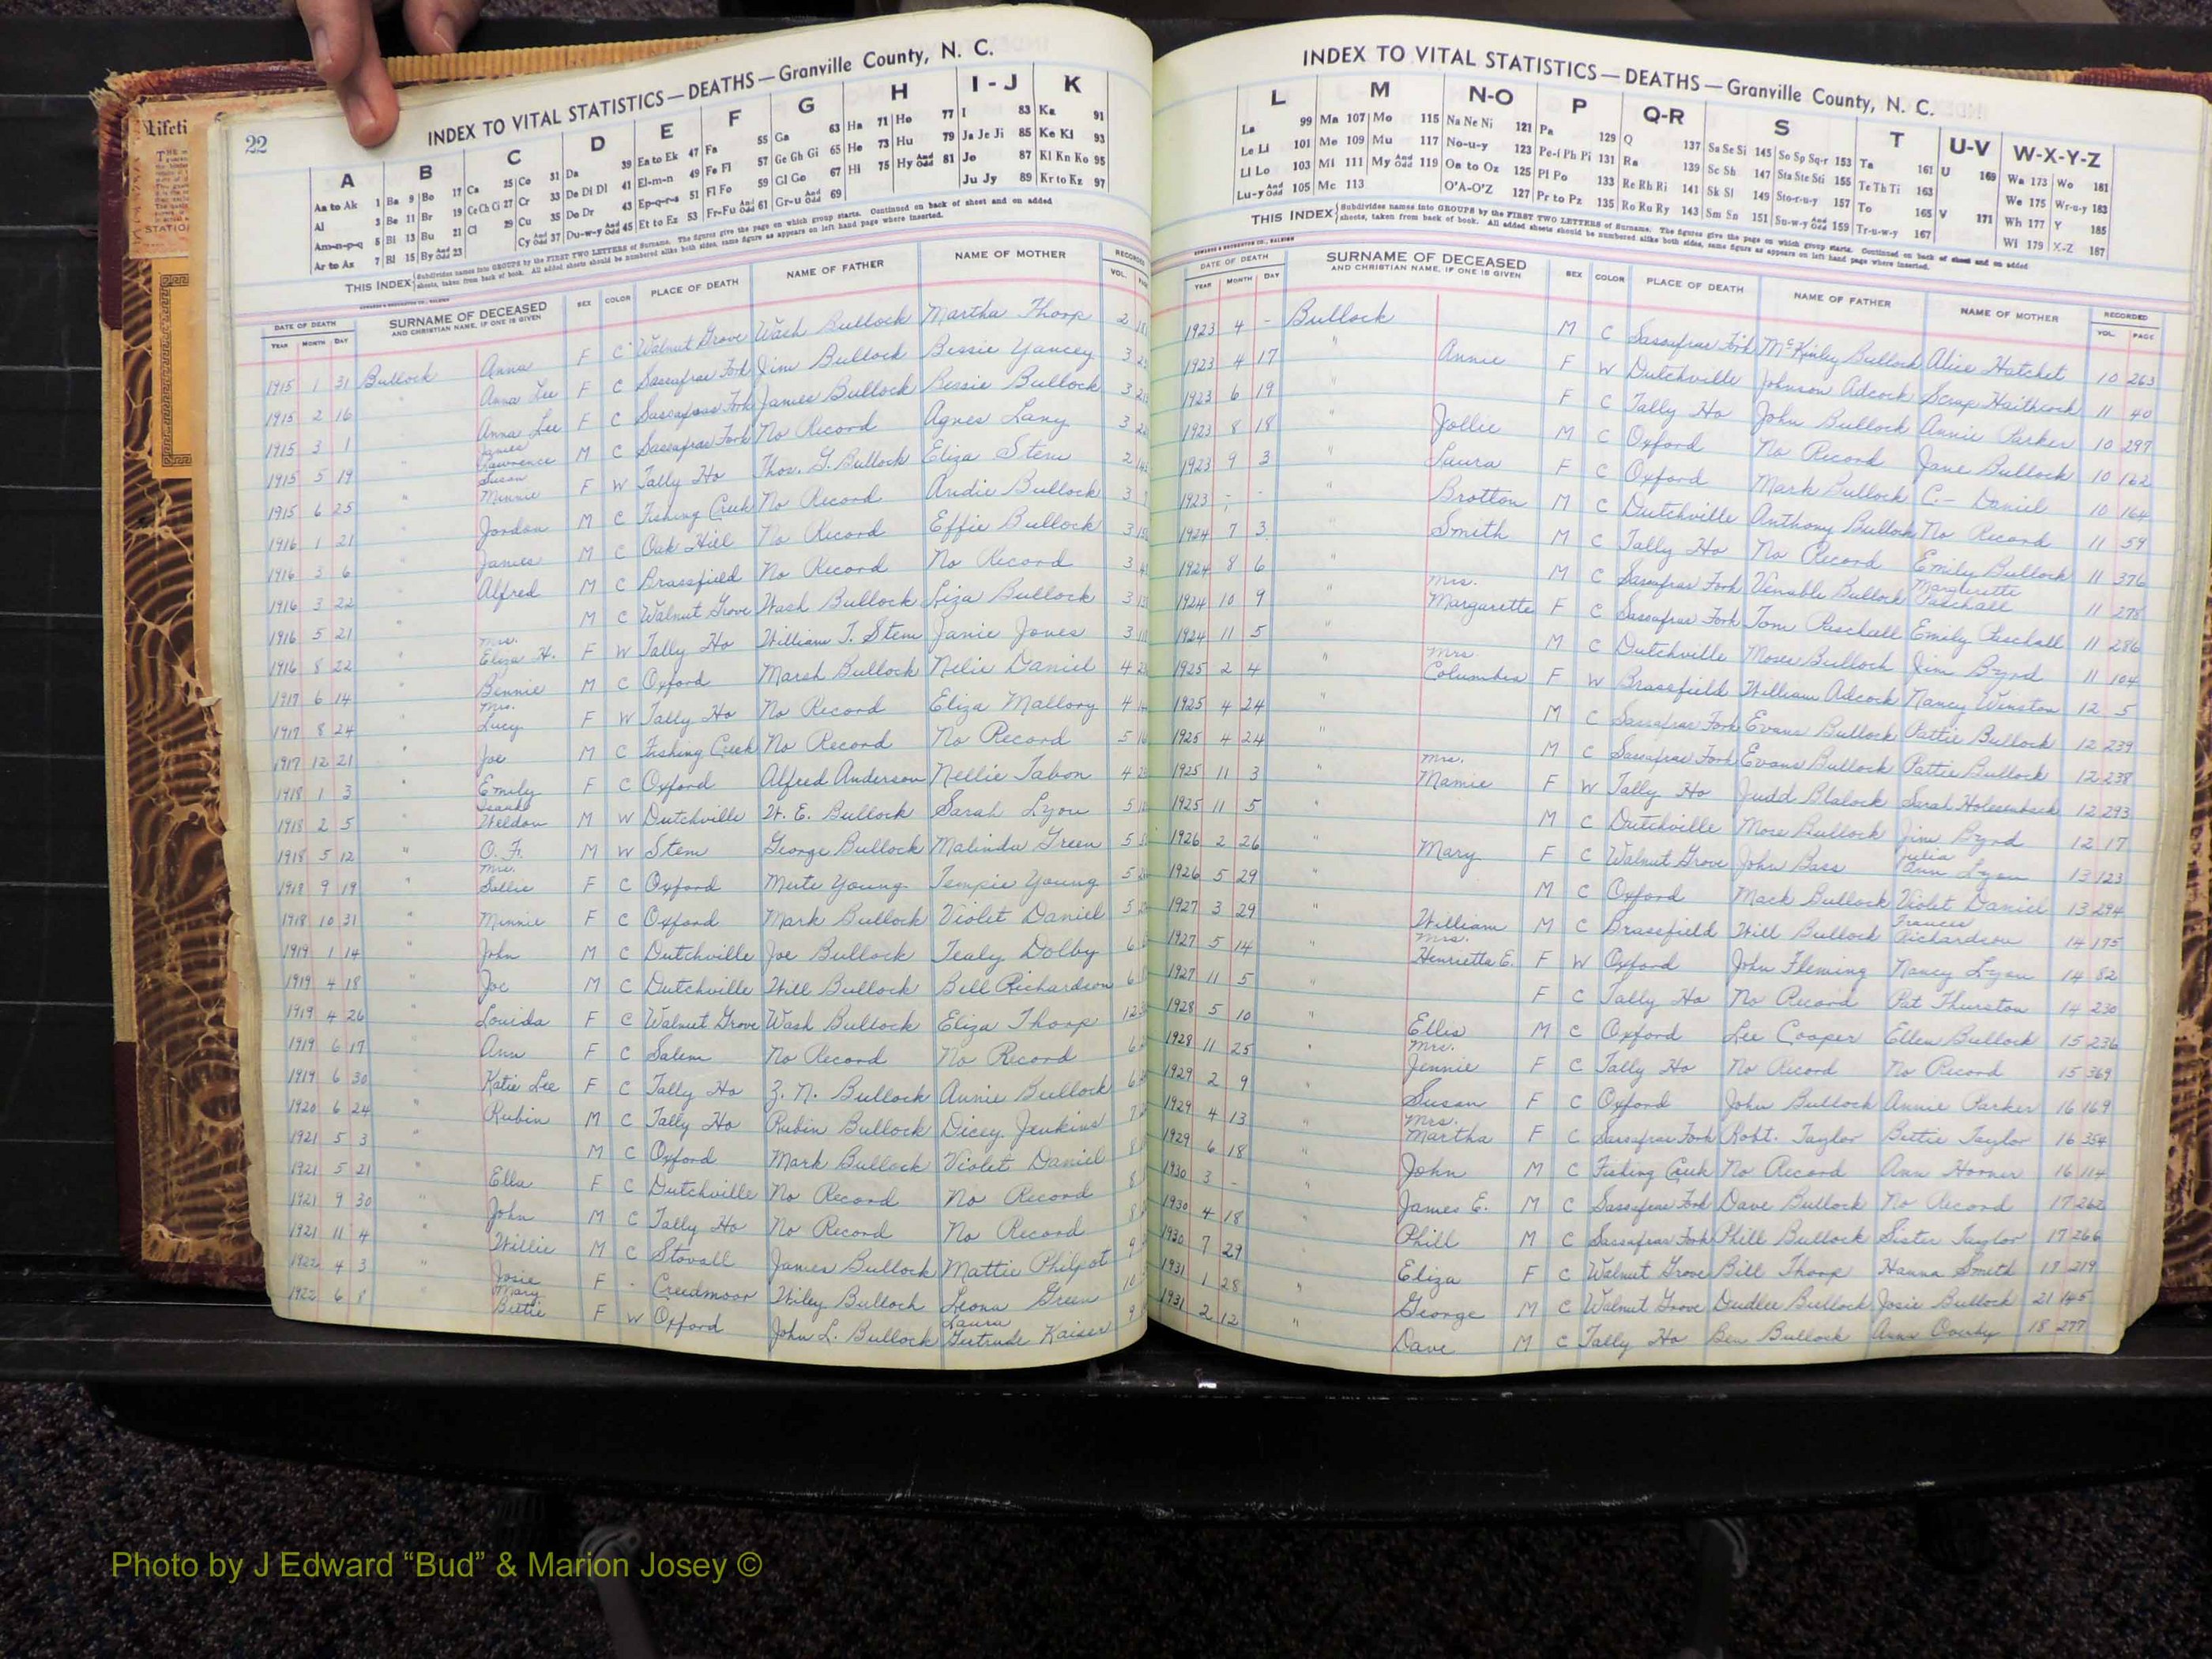 22
INDEX TO VITAL STATISTICS — DEATHS — Granville County, N. C.
A B C D E F G H I - J K
Aa to Ak 1 Ba 9 Bo 17 Ca 25 Co 31 Da 39 Ea to Ek 47 Fa 55 Ga 63 Ha 71 Ho 77 I 83 Ka 91
Al 3 Be 11 Br 19 Ce Ch Ci 27 Cr 33 De Di Dl 41 El-m-n 49 Fe Fi 57 Ge Gh Gi 65 He 73 Hu 79 Ja Je Ji 85 Ke Kl 93
Am-n-p-q 5 Bi 13 Bu 21 Cl 29 Cu 35 Do Dr 43 Ep-q-r-s 51 Fl Fo 59 Gl Go 67 Hi 75 Hy And Odd 81 Jo 87 Kl Kn Ko 95
Ar to Az 7 Bl 15 By And Odd 23 Cy And Odd 37 Du-w-y And Odd 45 Et to Ez 53 Fr-Fu And Odd 61 Gr-u And Odd 69 Ju Jy 89 Kr to Kz 97
THIS INDEX Subdivides names into GROUPS by the FIRST TWO LETTERS of Surname. The figures give the page on which group starts. Continued on back of sheet and on added
sheets, taken from back of book. All added sheets should be numbered alike both sides, same figure as appears on left hand page where inserted.
DATE OF DEATH SURNAME OF DECEASED SEX COLOR PLACE OF DEATH NAME OF FATHER NAME OF MOTHER RECORDED
YEAR MONTH DAY AND CHRISTIAN NAME, IF ONE IS GIVEN VOL.
1915 1 31 Bullock Anna F C Walnut Grove Wash Bullock Martha Thorp 2
1915 2 16 Anna Lee F C Sassafras Fork Jim Bullock Bessie Yancey 3
1915 3 1 Anna Lee F C Sassafras Fork James Bullock Bessie Bullock 3
1915 5 19 James Lawrence M C Sassafras Fork No Record Agnes Lany 3
1915 6 25 " Susan Minnie F W Tally Ho Thos. G. Bullock Eliza Stem 2
1916 1 21 Jordan M C Fishing Creek No Record Andie Bullock 3
1916 3 6 James M C Oak Hill No Record Effie Bullock 3
1916 3 22 Alfred M C Brassfield No Record No Record 3
1916 5 21 " M C Walnut Grove Wash Bullock Liza Bullock 3
1916 8 22 " Mrs. Eliza H. F W Tally Ho William T. Stem Janie Jones 3
1917 6 14 " Bennie M C Oxford Marsh Bullock Nelie Daniel 4
1917 8 24 Mrs. Lucy F W Tally Ho No Record Eliza Mallory 4
1917 12 21 " Joe M C Fishing Creek No Record No Record 5
1918 1 3 " Emily F C Oxford Alfred Anderson Nellie Tabon 4
1918 2 5 " Weldon M W Dutchville W. E. Bullock Sarah Lyon 5
1918 5 12 " O. F. M W Stem George Bullock Malinda Green 5
1918 9 19 " Mrs. Sallie F C Oxford Mute Young Tempie Young 5
1918 10 31 " Minnie F C Oxford Mark Bullock Violet Daniel 5
1919 1 14 " John M C Dutchville Joe Bullock Tealy Dolby 6
1919 4 18 " Joe M C Dutchville Will Bullock Bell Richardson 6
1919 4 26 " Louida F C Walnut Grove Wash Bullock Eliza Thorp 12
1919 6 17 " Ann F C Salem No Record No Record 6
1919 6 30 " Katie Lee F C Tally Ho Z. N. Bullock Annie Bullock 6
1920 6 24 " Rubin M C Tally Ho Rubin Bullock Dicey Jenkins 7
1921 5 3 " M C Oxford Mark Bullock Violet Daniel 8
1921 5 21 " Ella F C Dutchville No Record No Record 8
1921 9 30 " John M C Tally Ho No Record No Record 8
1921 11 4 " Willie M C Stovall James Bullock Mattie Philpot 9
1922 4 3 " Josie Mary F - Creedmoor Wiley Bullock Leona Green 10
1922 6 8 Bettie F W Oxford John L. Bullock Laura Gertrude Kaiser 9
INDEX TO VITAL STATISTICS — DEATHS — Granville County, N. C.
L M N-O P Q-R S T U-V W-X-Y-Z
La 99 Ma 107 Mo 115 Na Ne Ni 121 Pa 129 Q 137 Sa Se Si 145 So Sp Sq-r 153 Ta 161 U 169 Wa 173 Wo 181
Le Li 101 Me 109 Mu 117 No-u-y 123 Pe-f Ph Pi 131 Ra 139 Sc Sh 147 Sta Ste Sti 155 Te Th Ti 163 We 175 Wr-u-y 183
Ll Lo 103 Mi 111 My And Odd 119 Oa to Oz 125 Pl Po 133 Re Rh Ri 141 Sk Sl 149 Sto-r-u-y 157 To 165 V 171 Wh 177 Y 185
Lu-y And Odd 105 Mc 113 O'A-O'Z 127 Pr to Pz 135 Ro Ru Ry 143 Sm Sn 151 Su-w-y And Odd 159 Tr-u-w-y 167 Wi 179 X-Z 187
THIS INDEX Subdivides names into GROUPS by the FIRST TWO LETTERS of Surname. The figures give the page on which group starts. Continued on back of sheet and on added
sheets, taken from back of book. All added sheets should be numbered alike both sides, same figure as appears on left hand page where inserted.
DATE OF DEATH SURNAME OF DECEASED SEX COLOR PLACE OF DEATH NAME OF FATHER NAME OF MOTHER RECORDED
YEAR MONTH DAY AND CHRISTIAN NAME, IF ONE IS GIVEN VOL. PAGE
1923 4 - Bullock M C Sassafras Fork McKinley Bullock Alice Hatchet 10 263
1923 4 17 " Annie F W Dutchville Johnson Adcock Scrap Haithcock 11 40
1923 6 19 " F C Tally Ho John Bullock Annie Parker 10 297
1923 8 18 " Jollie M C Oxford No Record Jane Bullock 10 122
1923 9 3 " Laura F C Oxford Mark Bullock C- Daniel 10 164
1923 - - " Brotton M C Dutchville Anthony Bullock No Record 11 59
1924 7 3 " Smith M C Tally Ho No Record Emily Bullock 11 376
1924 8 6 " M C Sassafras Fork Venable Bullock Margurette Paschall 11 278
1924 10 9 " Mrs. Margarette F C Sassafras Fork Tom Paschall Emily Paschall 11 286
1924 11 5 " M C Dutchville Moses Bullock Jim Byrd 11 104
1925 2 4 " Mrs. Columbia F W Brassfield William Adcock Nancy Winston 12 5
1925 4 24 " M C Sassafras Fork Evans Bullock Pattie Bullock 12 239
1925 4 24 " M C Sassafras Fork Evans Bullock Pattie Bullock 12 238
1925 11 3 " Mrs. Mamie F W Tally Ho Judd Blalock Sarah 12 293
1925 11 5 " M C Dutchville Mose Bullock Jim Byrd 12 17
1926 2 26 " Mary F C Walnut Grove John Bass Julia Ann Lyon 13 123
1926 5 29 " M C Oxford Mack Bullock Violet Daniel 13 294
1927 3 29 " William M C Brassfield Will Bullock Frances Richardson 14 175
1927 5 14 " Mrs. Henrietta E. F W Oxford John Fleming Nancy Lyon 14 82
1927 11 5 " F C Tally Ho No Record Pat Thurston 14 230
1928 5 10 " Ellis M C Oxford Lee Cooper Ellen Bullock 15 236
1928 11 25 " Mrs. Jennie F C Tally Ho No Record No Record 15 369
1929 2 9 Susan F C Oxford John Bullock Annie Parker 16 169
1929 4 13 " Mrs. Martha F C Sassafras Fork Robt. Taylor Bettie Taylor 16 354
1929 6 18 " John M C Fishing Creek No Record Ann Horner 16 114
1930 3 - " James E. M C Sassafras Fork Dave Bullock No Record 17 262
1930 4 18 Phill M C Sassafras Fork Phill Bullock Sister Taylor 17 266
1930 7 29 Eliza F C Walnut Grove Bill Thorp Hanna Smith 17 219
1931 1 28 " George M C Walnut Grove Dudlee Bullock Josie Bullock 21 145
1931 2 12 " Dave M C Tally Ho Ben Bullock Ann 18 277
Photo by J Edward “Bud” & Marion Josey ©